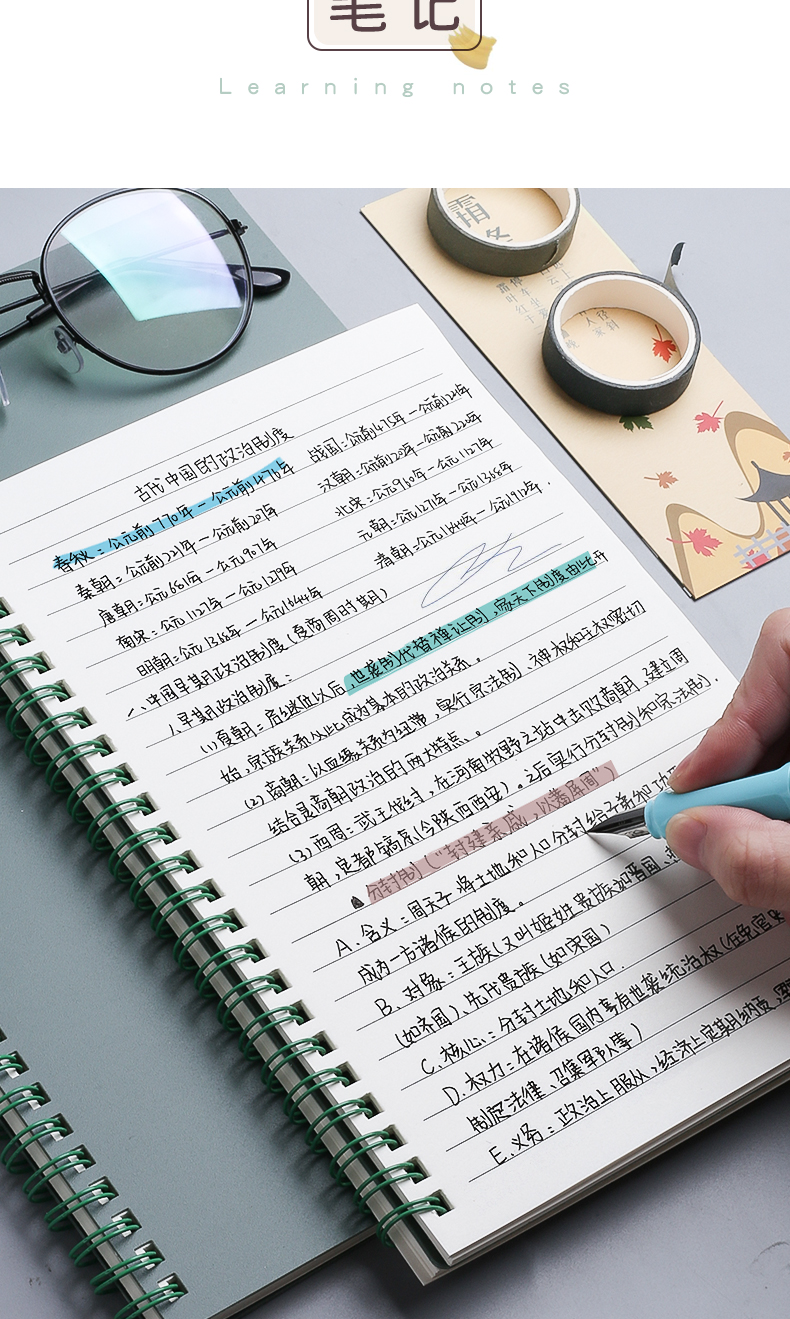 笔记
Learning notes
霜
冬
古代中国的政治制度
春秋：公元前770年－公元前476年
战国：公元前475年－公元前221年
秦朝：公元前221年－公元前207年
汉朝：公元前202年－公元220年
唐朝：公元618年－公元907年
北宋：公元960年－公元1127年
南宋：公元1127年－公元1279年
元朝：公元1271年－公元1368年
明朝：公元1368年－公元1644年
清朝：公元1644年－公元1912年．
一、中国早期政治制度（夏商周时期）
1.早期政治制度：
(1)夏朝：启继位以后，世袭制代替禅让制，家天下制度由此开
始，宗族关系从此成为基本的政治关系。
(2)商朝：以血缘关系为纽带，实行宗法制、神权和王权密切
结合是商朝政治的两大特点、。
(3)西周：武王伐纣，在河南牧野之战中击败商朝，建立周
朝，定都镐京(今陕西西安)。之后实行分封制和宗法制．
分封制（“封建亲戚，以蕃屏周”）
A．含义：周天子将土地和人口分封给子弟和功
成为一方诸侯的制度。
B．对象：王族(又叫姬姓贵族如晋国、
(如齐国)、先代贵族（如宋国）
C．核心：分封土地和人口．
D．权力：在诸侯国内享有世袭统治权(在免官
制定法律、召集
E．义务：政治上服从，经济上定期纳贡，